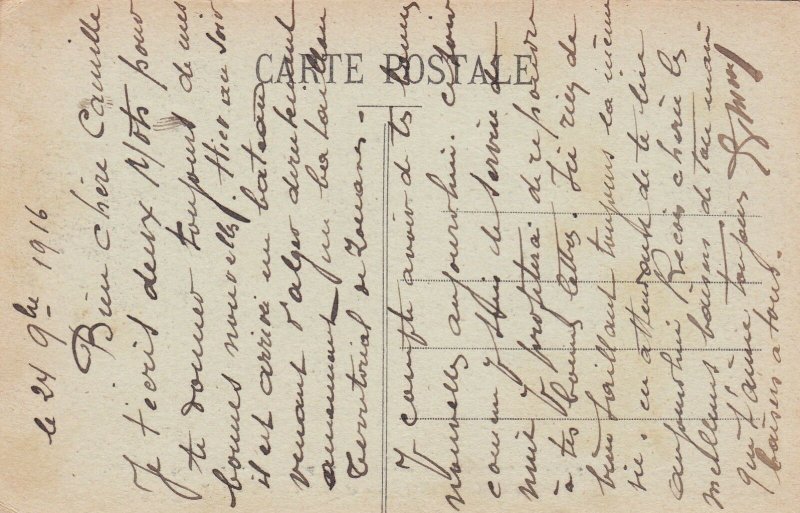 CARTE POSTALE
le 24 9bre 1916
Bien chère Camille
Je t'écris deux Mots pour
te donner toujours de mes
bonnes nouvelles. Hier au soir
il est arrivé un bateau
venant d'alger directement
amennant un bataillon
Territorial de Zouaves.
Je compte avoir de tes bonnes
Nouvelles aujourd'hui.
comme je suis de service de
nuit je profiterai de repondre
à tes bonnes lettres. Ici rien de
bien saillant toujours la même
vie. en attendant de te lire
aujourd'hui Recois chérie les
meilleurs baisers de ton mari
qui t'aime toujours
baisers à tous.